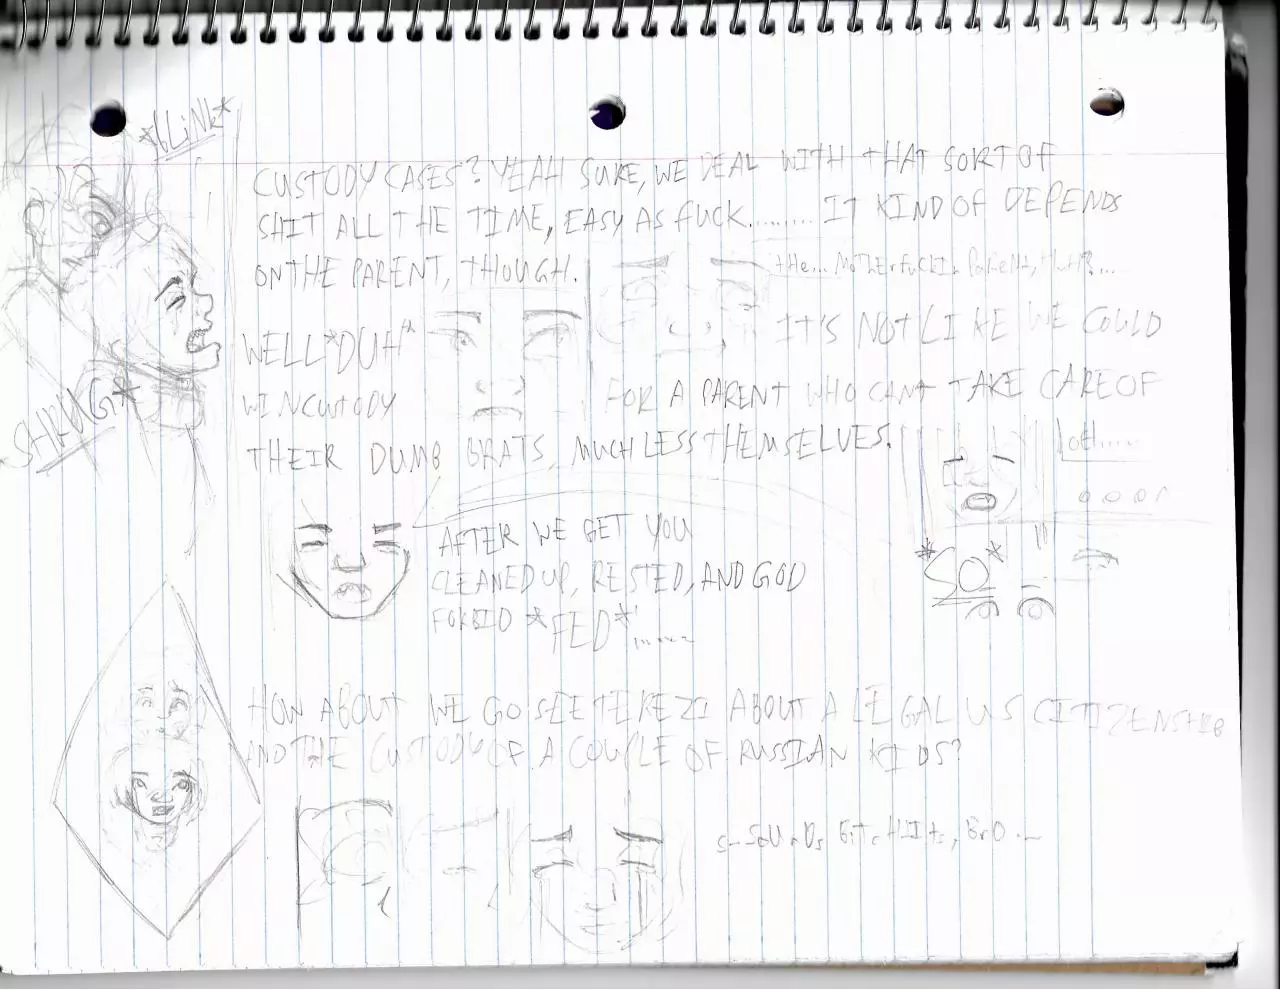 *bLiNk*
CUSTODY CASES? YEAH SURE, WE DEAL WITH THAT SORT OF
SHIT ALL THE TIME, EASY AS FUCK......... IT KIND OF DEPENDS
ON THE PARENT, THOUGH.
tHe... MoTHerfuckin PaReNt, tHat?...
*SHRUG*
WELL *DUH* IT'S NOT LIKE WE COULD
WIN CUSTODY FOR A PARENT WHO CANT TAKE CARE OF
THEIR DUMB BRATS, MUCH LESS THEMSELVES.
oH.....
*SO*
AFTER WE GET YOU
CLEANED UP, RESTED, AND GOD
FORBID *FED*......
HOW ABOUT WE GO SEE TEREZI ABOUT A LEGAL US CITIZENSHIP
AND THE CUSTODY OF A COUPLE OF RUSSIAN KIDS?
S-SoUnDs BiTcHtItS, BrO...